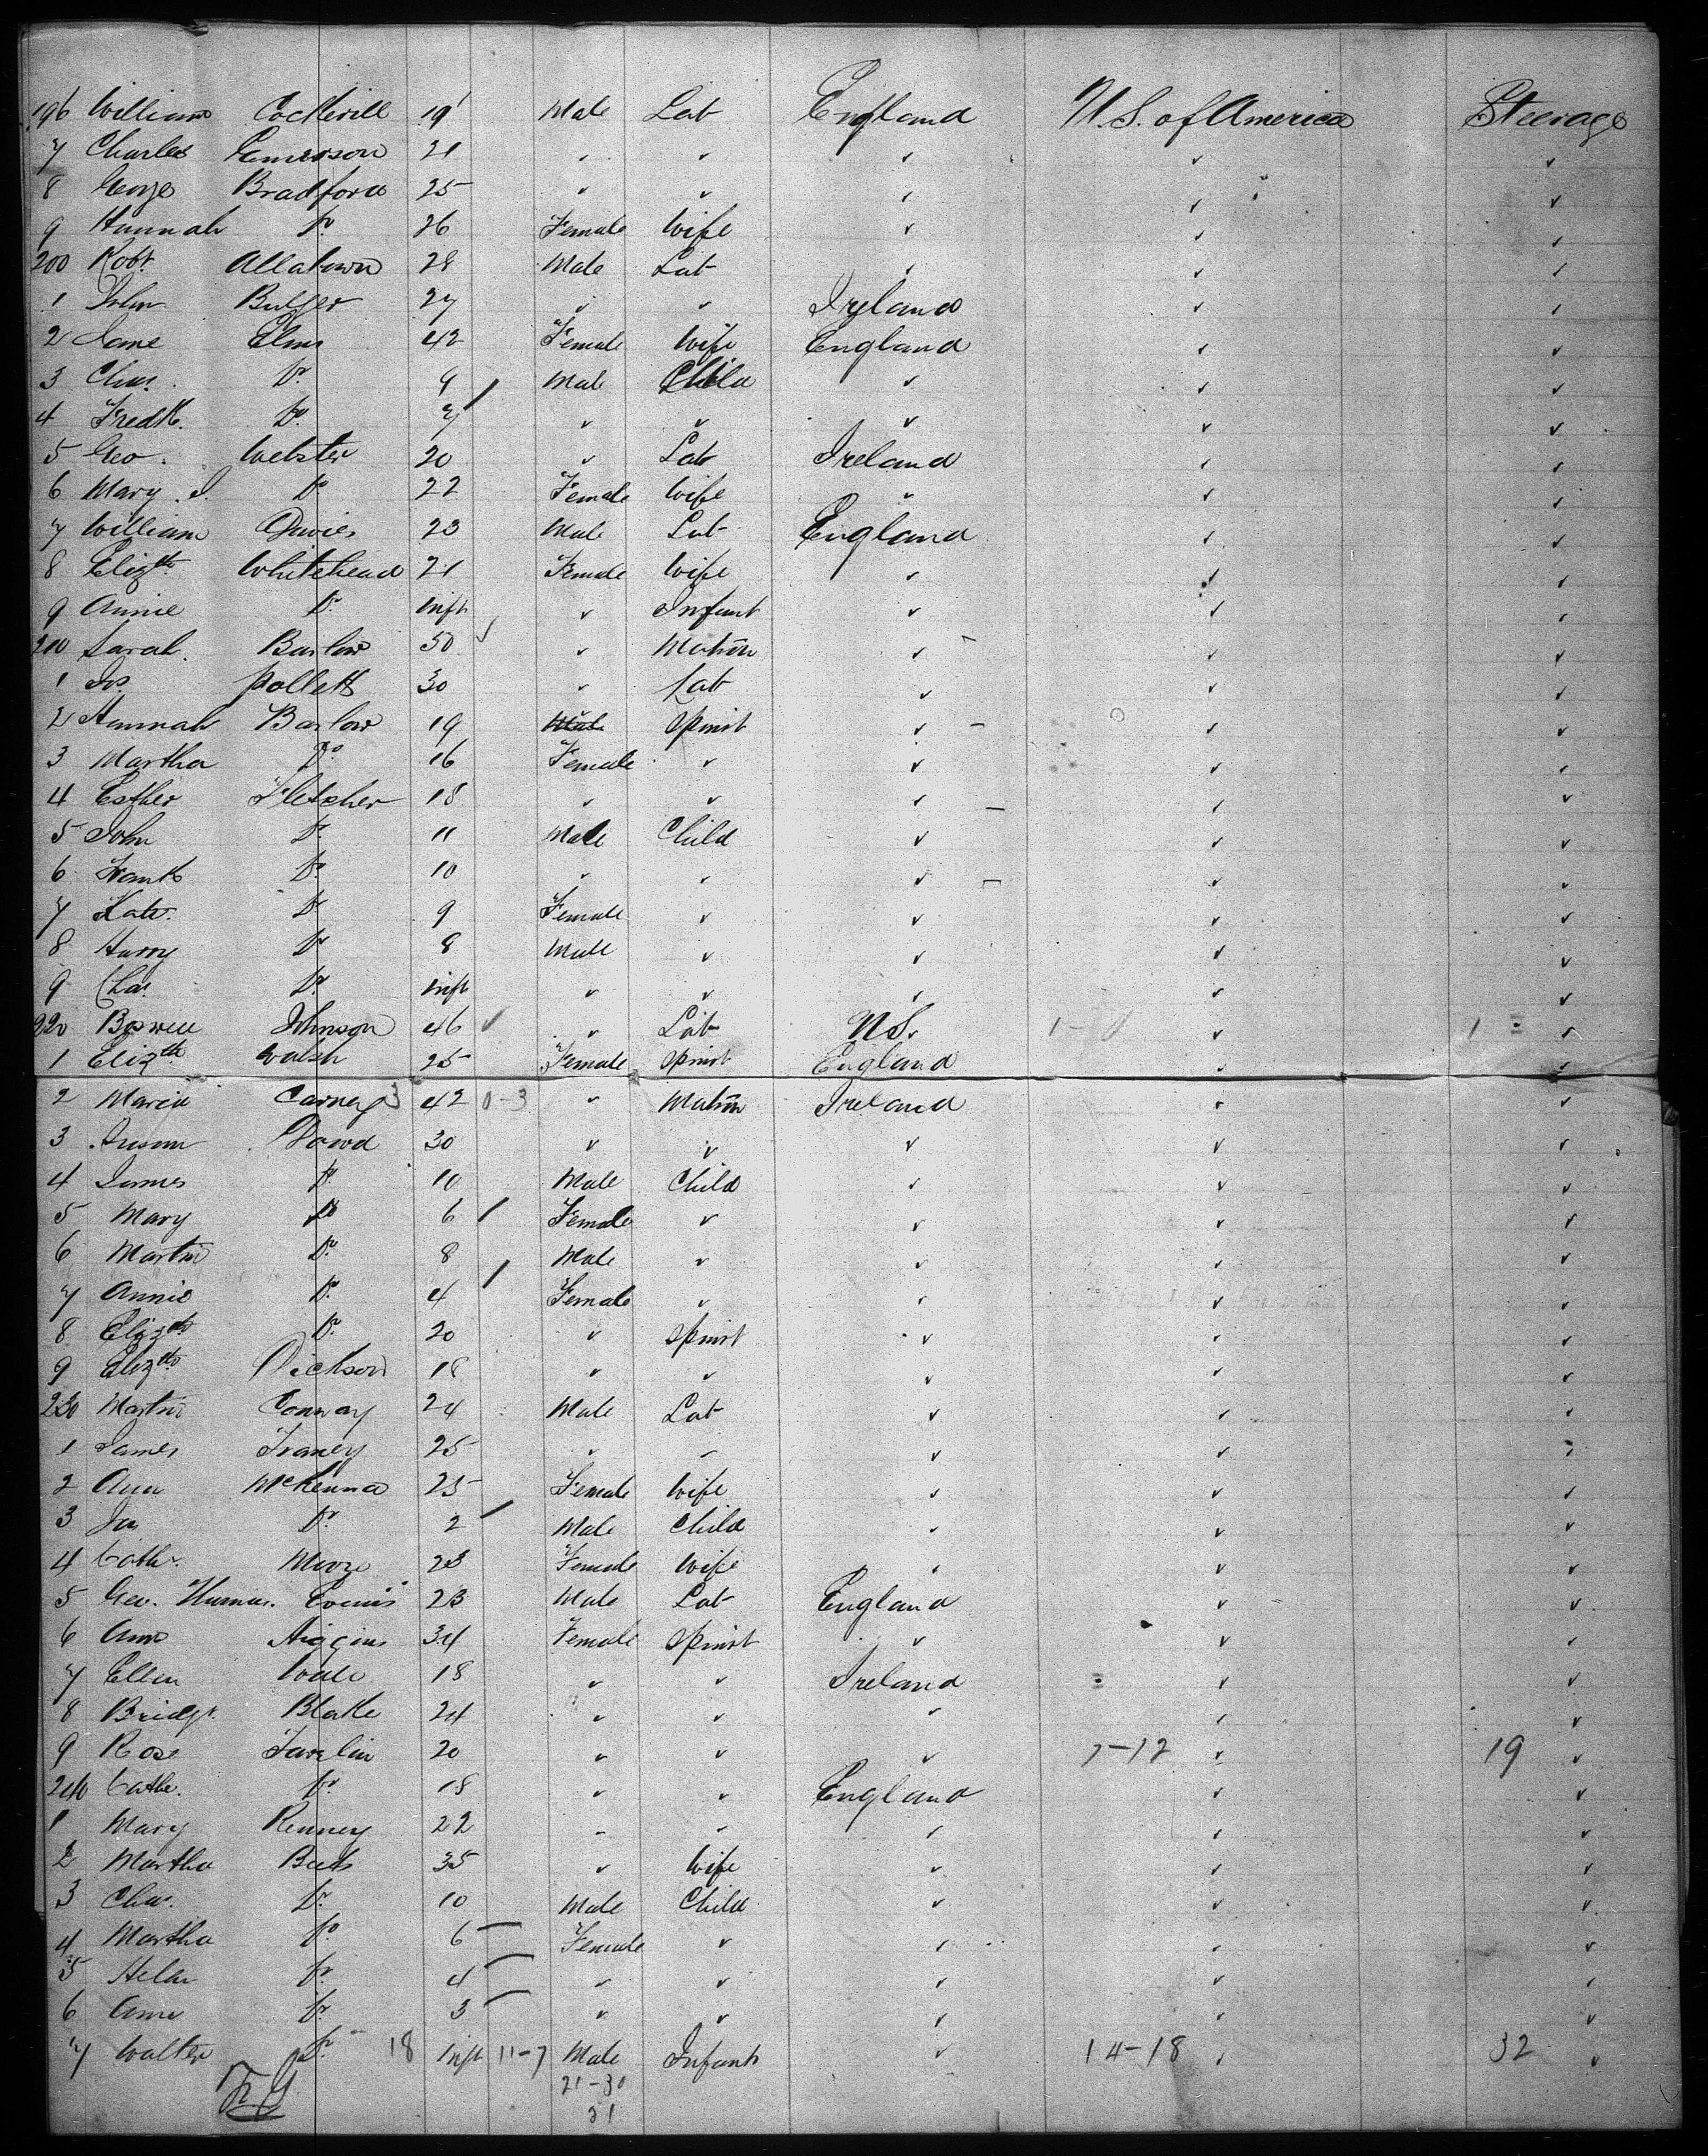 196 William Cockerill 19 Male Lab England U.S. of America Steerage
7 Charles Emerson 21 " " " " "
8 George Bradford 25 " " " " "
9 Hannah Do 26 Female Wife " " "
200 Robt. Allatown 28 Male Lab " " "
1 John Bulger 27 " " Ireland " "
2 Jane Elms 42 Female Wife England " "
3 Chas. Do. 9 Male Child " " "
4 Fredk. Do. 7 " " " " "
5 Geo. Webster 20 " Lab Ireland " "
6 Mary. J. Do 22 Female Wife " " "
7 William Davies 23 Male Lab England " "
8 Elizth Whitehead 21 Female Wife " " "
9 Annie Do. Inft " Infant " " "
210 Sarah. Barlow 50 " Matron " " "
1 Jos. Polletts 30 " Lab " " "
2 Hannah Barlow 19 Male Spinst " " "
3 Martha Do 16 Female " " " "
4 Esther Fletcher 18 " " " " "
5 John Do. 11 Male Child " " "
6 Frank Do. 10 " " " " "
7 Kate. Do 9 Female " " " "
8 Harry Do 8 Male " " " "
9 Chas. Do. Inft " " " " "
220 Boswell Johnson 46 " Lab U.S. 1 - 0 " 1 "
1 Elizth Walsh 25 Female Spinst England " "
2 Maria Carney 3 42 0-3 " Matron Ireland " "
3 Susan Dowd 30 " " " " "
4 James Do. 10 Male Child " " "
5 Mary Do 6 Female " " " "
6 Martin Do. 8 Male " " " "
7 Annie Do. 4 Female " " " "
8 Elizth Do. 20 " Spinst " " "
9 Elizth Dickson 18 " " " " "
230 Martin Conway 24 Male Lab " " "
1 James Traney 25 " " " " "
2 Ann McKenna 25 Female Wife " " "
3 Jas Do. 2 Male Child " " "
4 Cathe. Moore 23 Female Wife " " "
5 Geo. Thomas. Evans 23 Male Lab England " "
6 Ann Higgins 34 Female Spinst " " "
7 Ellen Wall 18 " " Ireland " "
8 Bridgt. Blake 24 " " " " "
9 Rose 20 " " " 7-12 " 19 "
240 Cathe. Do. 18 " " England " "
1 Mary Kenney 22 " " " " "
2 Martha Betts 35 " Wife " " "
3 Chas. Do. 10 Male Child " " "
4 Martha Do 6 Female " " " "
5 Helen Do. 4 " " " " "
6 Anne Do. 3 " " " " "
7 Walter Do. 18 Inft 11-7 Male Infant " 14-18 " 32 "
21-30
31